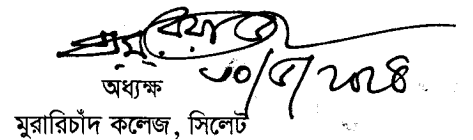 ৩০/৫/২০২৪
অধ্যক্ষ
মুরারিচাঁদ কলেজ, সিলেট